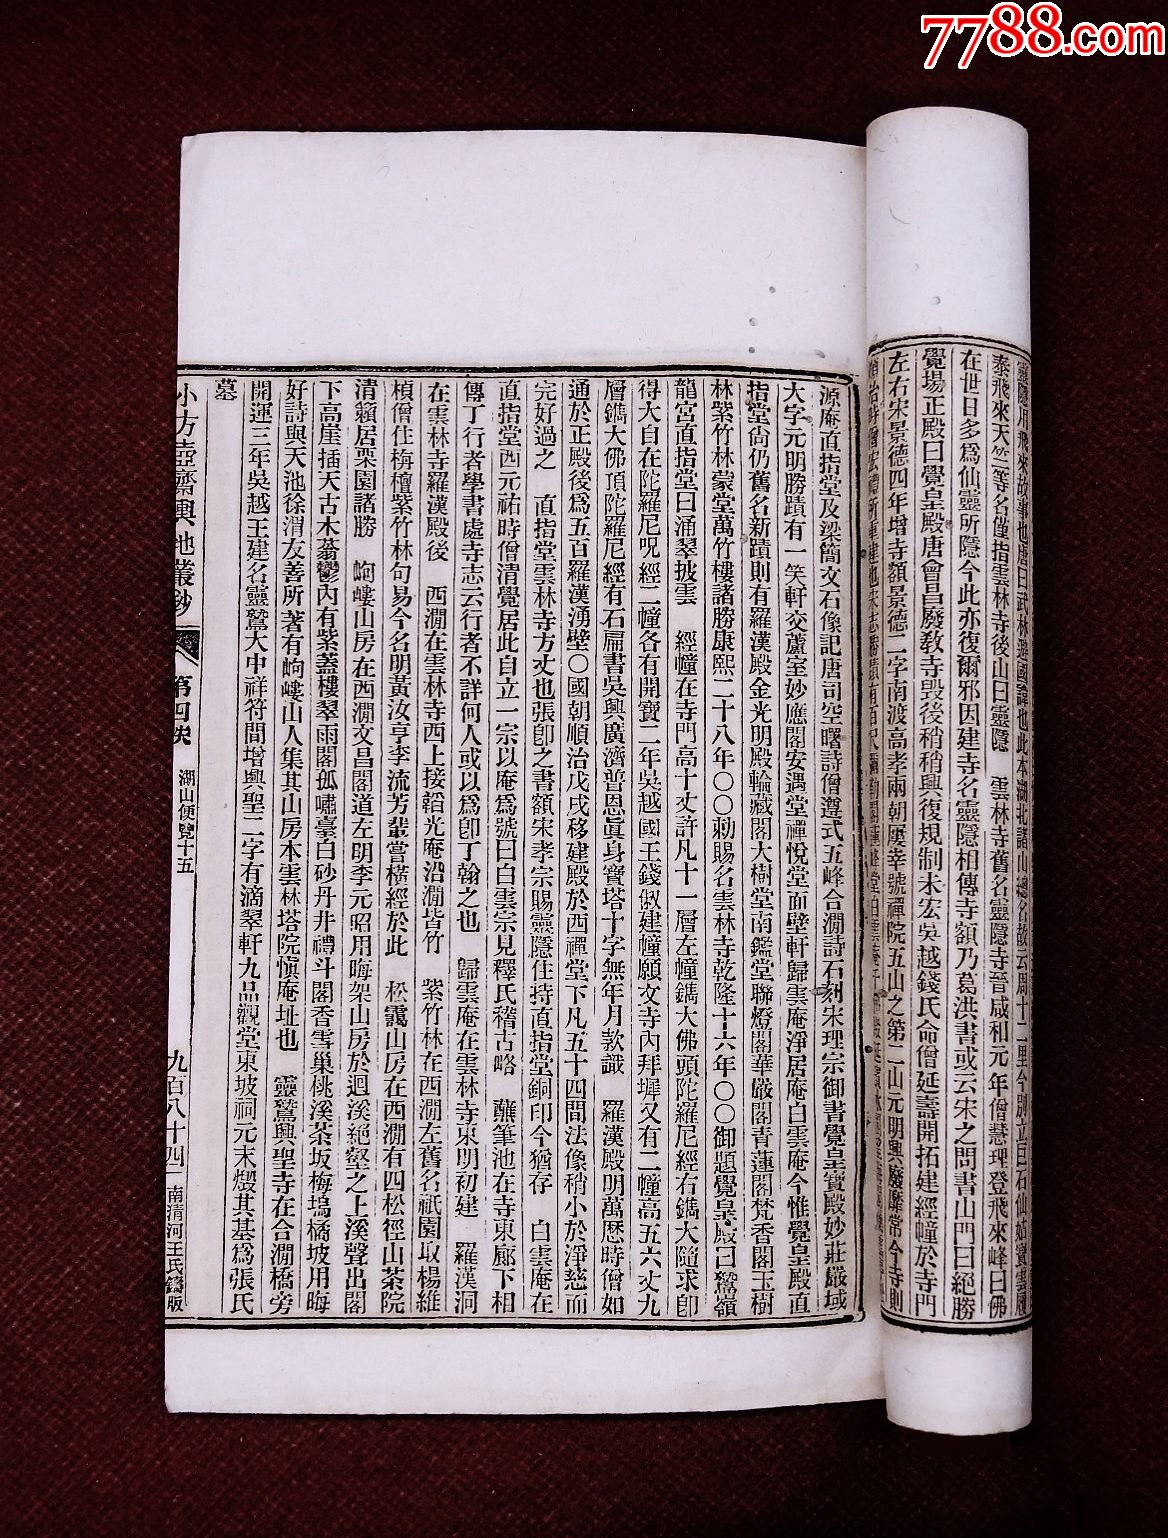 7788.com
靈隱用飛來故事也唐曰武林避國諱也此本湖北諸山總名故云周十二里今別立白石仙姑寶雲履
泰飛來天竺等名僅指雲林寺後山曰靈隱　雲林寺舊名靈隱寺晉咸和元年僧慧理登飛來峰曰佛
在世日多爲仙靈所隱今此亦復爾邪因建寺名靈隱相傳寺額乃葛洪書或云宋之問書山門曰絕勝
覺場正殿曰覺皇殿唐會昌廢教寺毀後稍稍興復規制未宏吳越錢氏命僧延壽開拓建經幢於寺門
左右宋景德四年增寺額景德二字南渡高孝兩朝屢幸號禪院五山之第二山元明興廢靡常今寺則
順治時僧宏禮所重建也宋志勝蹟有百尺彌勒閣蓮峰堂白雲菴
源庵直指堂及梁簡文石像記唐司空曙詩僧遵式五峰合澗詩石刻宋理宗御書覺皇寶殿妙莊嚴域
大字元明勝蹟有一笑軒交蘆室妙應閣安遇堂禪悅堂面壁軒歸雲庵淨居庵白雲庵今惟覺皇殿直
指堂尙仍舊名新蹟則有羅漢殿金光明殿輪藏閣大樹堂南鑑堂聯燈閣華嚴閣青蓮閣梵香閣玉樹
林紫竹林蒙堂萬竹樓諸勝康熙二十八年〇〇勅賜名雲林寺乾隆十六年〇〇御題覺皇殿曰鷲嶺
龍宮直指堂曰涌翠披雲　經幢在寺門高十丈許凡十一層左幢鐫大佛頭陀羅尼經右鐫大隨求卽
得大自在陀羅尼呪經二幢各有開寶二年吳越國王錢俶建幢願文寺內拜墀又有二幢高五六丈九
層鐫大佛頂陀羅尼經有石扁書吳興廣濟普恩眞身寶塔十字無年月款識　羅漢殿明萬歷時僧如
通於正殿後爲五百羅漢湧壁〇國朝順治戊戌移建殿於西禪堂下凡五十四間法像稍小於淨慈而
完好過之　直指堂雲林寺方丈也張卽之書額宋孝宗賜靈隱住持直指堂銅印今猶存　白雲庵在
直指堂西元祐時僧清覺居此自立一宗以庵爲號曰白雲宗見釋氏稽古略　蘸筆池在寺東廊下相
傳丁行者學書處寺志云行者不詳何人或以爲卽丁翰之也　歸雲庵在雲林寺東明初建　羅漢洞
在雲林寺羅漢殿後　西澗在雲林寺西上接韜光庵沿澗皆竹　紫竹林在西澗左舊名祇園取楊維
楨僧住栴檀紫竹林句易今名明黃汝亨李流芳輩嘗橫經於此　松靄山房在西澗有四松徑山茶院
清籟居栗園諸勝　峋嶁山房在西澗文昌閣道左明李元昭用晦架山房於迴溪絕壑之上溪聲出閣
下高崖插天古木蓊鬱內有紫蓋樓翠雨閣孤嘯臺白砂丹井禮斗閣香雪巢桃溪茶坂梅塢橘坡用晦
好詩與天池徐渭友善所著有峋嶁山人集其山房本雲林塔院愼庵址也　靈鷲興聖寺在合澗橋旁
開運三年吳越王建名靈鷲大中祥符間增興聖二字有滴翠軒九品觀堂東坡祠元末燬其基爲張氏
墓
小方壺齋輿地叢鈔　第四帙　湖山便覽十五　九百八十四　南清河王氏鑄版